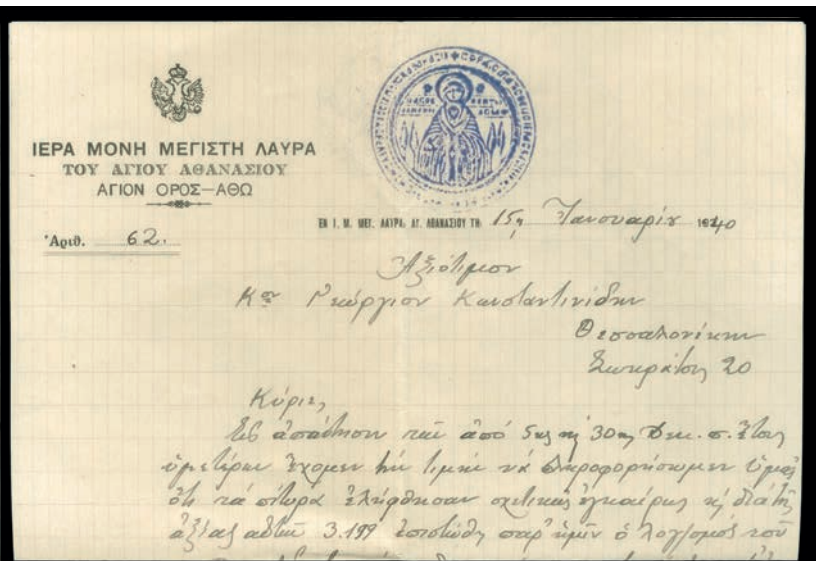 ΙΕΡΑ ΜΟΝΗ ΜΕΓΙΣΤΗ ΛΑΥΡΑ
ΤΟΥ ΑΓΙΟΥ ΑΘΑΝΑΣΙΟΥ
ΑΓΙΟΝ ΟΡΟΣ—ΑΘΩ
ΕΝ Ι. Μ. ΜΕΓ. ΛΑΥΡΑ, ΑΓ. ΑΘΑΝΑΣΙΟΥ ΤΗ 15ῃ Ἰανουαρίου 1940
Ἀριθ. 62.
Ἀξιότιμον
Κον Γεώργιον Κωνσταντινίδην
Θεσσαλονίκην
Σωκράτους 20
Κύριε,
Εἰς ἀπάντησιν τῶν ἀπὸ 5ης καὶ 30ης Δεκ. π. ἔτους
ὑμετέρων ἔχομεν τὴν τιμὴν νὰ πληροφορήσωμεν ὑμᾶς
ὅτι τὰ πίτυρα ἐλήφθησαν σχετικῶς ἐγκαίρως καὶ διὰ τῆς
ἀξίας αὐτῶν 3.199 ἐπιστώθη παρ' ἡμῖν ὁ λογ/σμός του